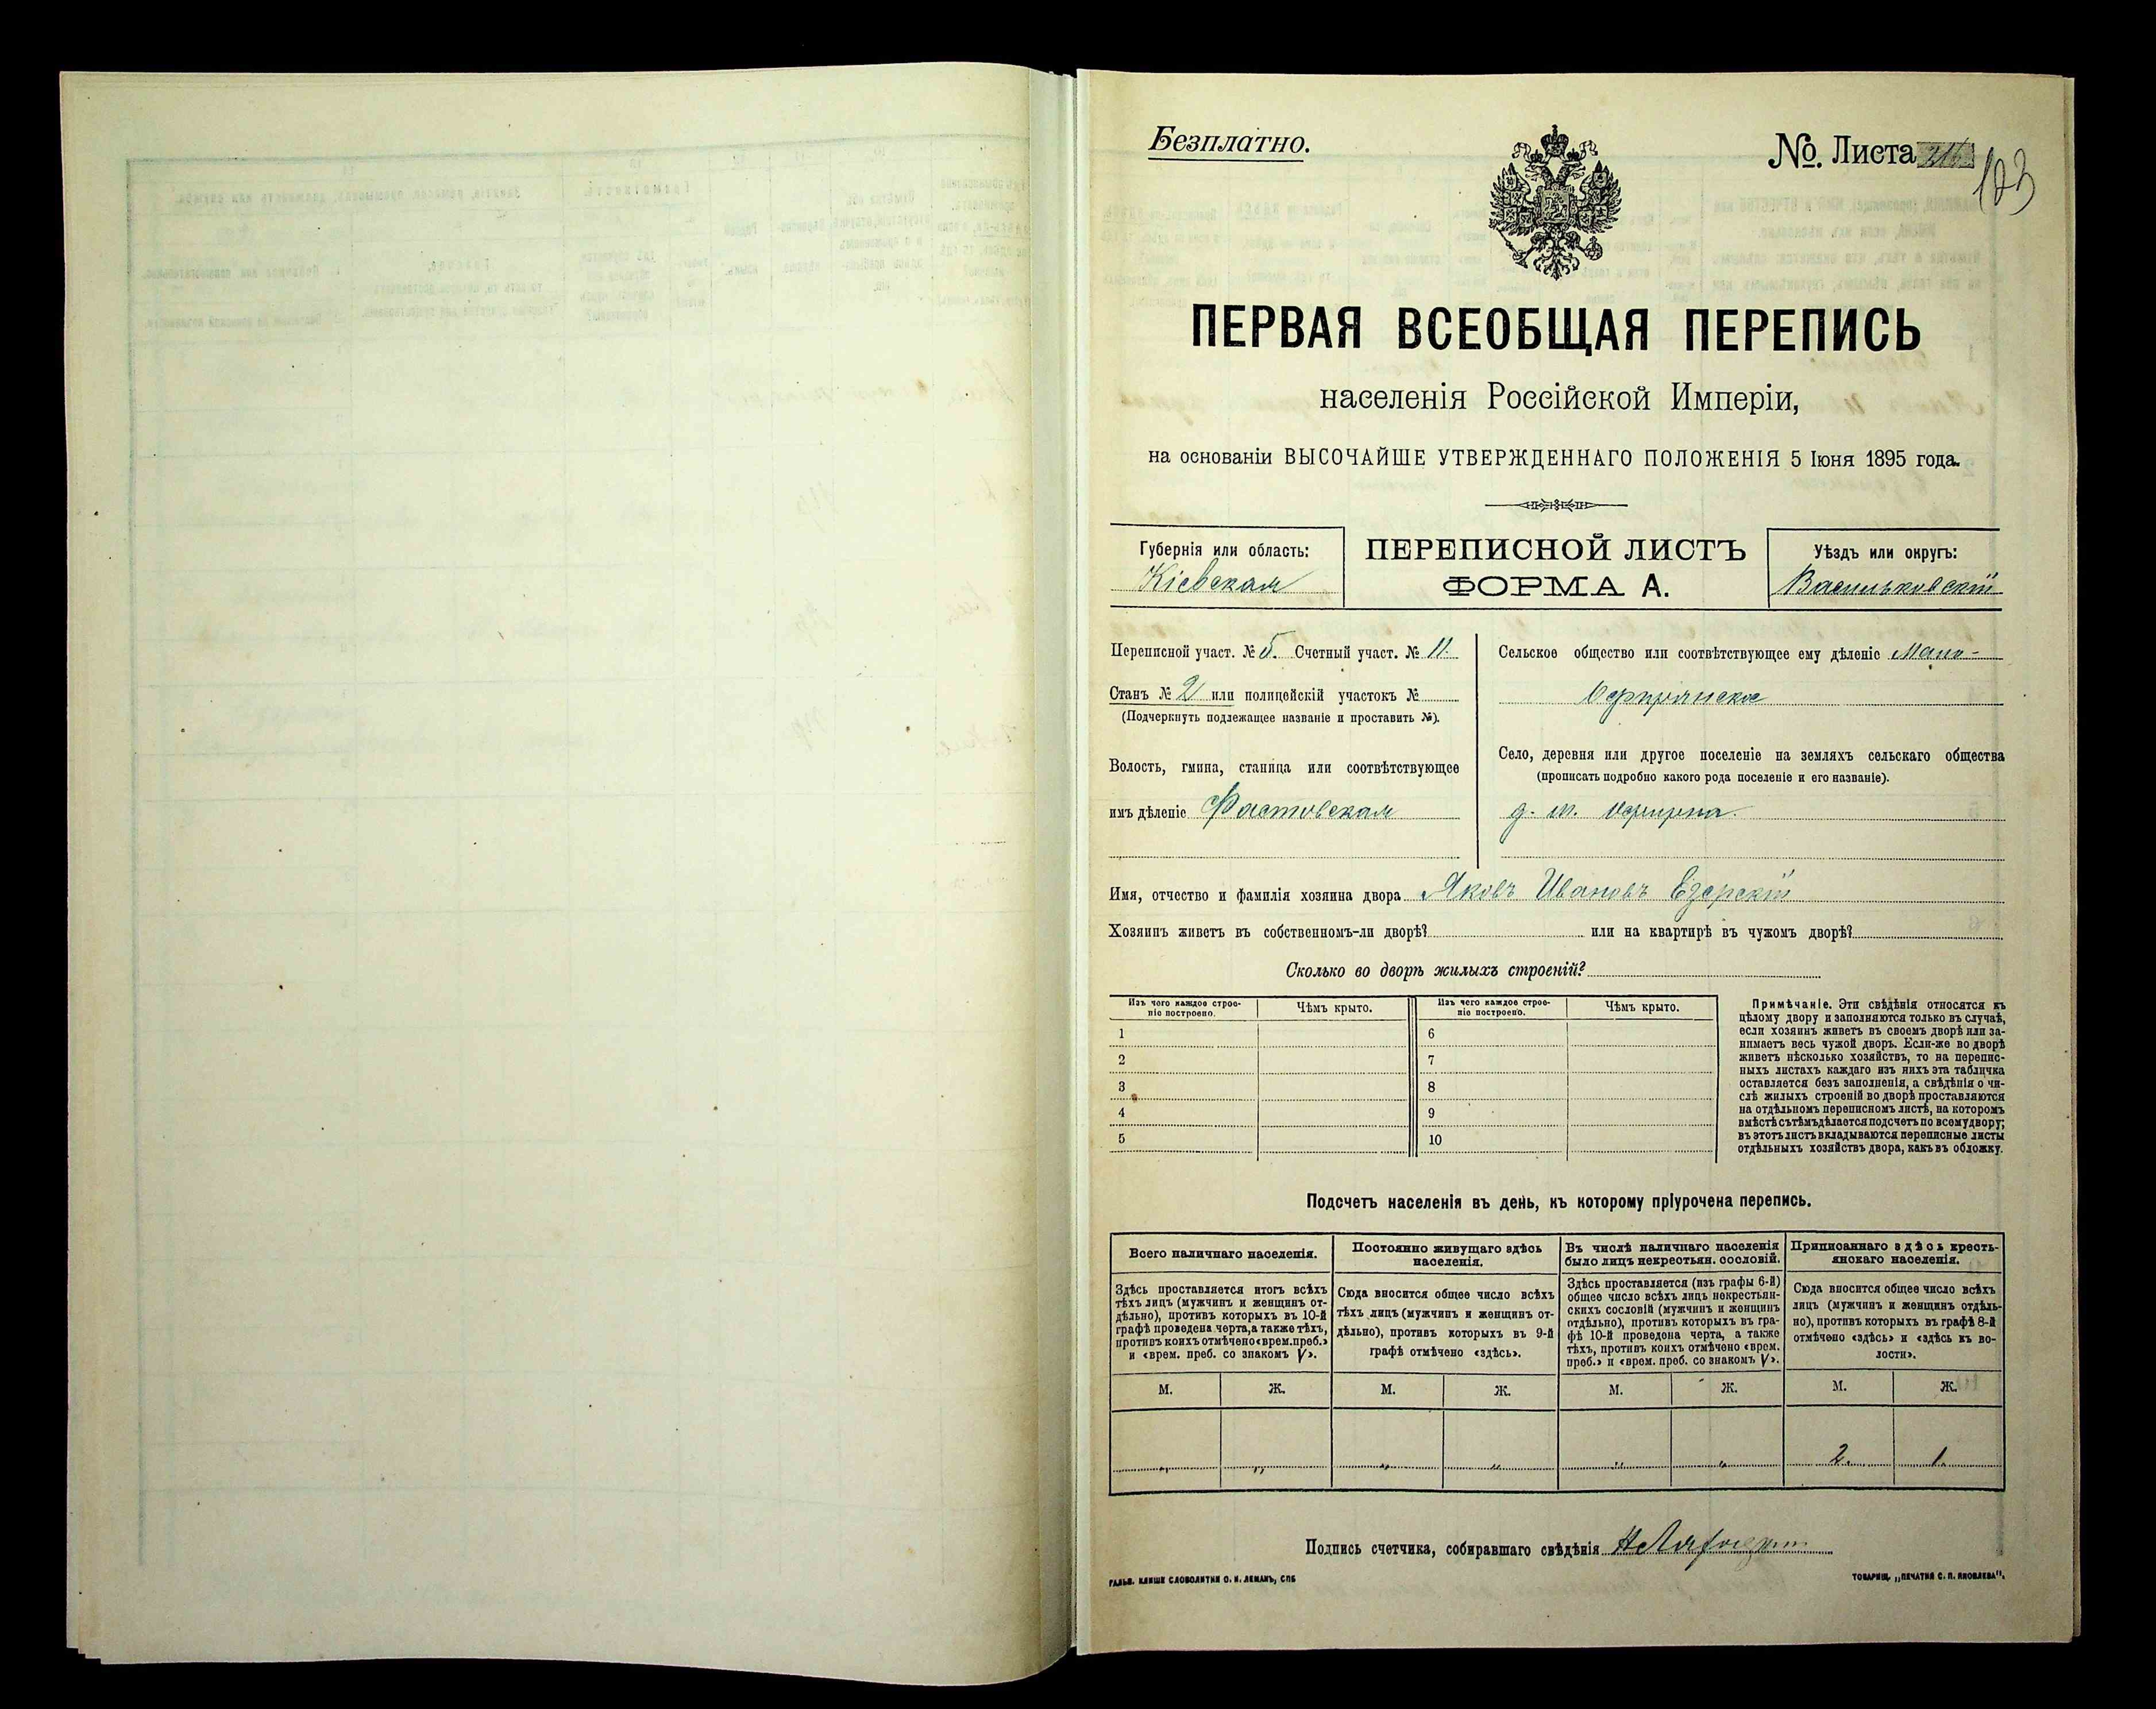 Безплатно.
№. Листа
123
ПЕРВАЯ ВСЕОБЩАЯ ПЕРЕПИСЬ
населенія Россійской Имперіи,
на основаніи ВЫСОЧАЙШЕ УТВЕРЖДЕННАГО ПОЛОЖЕНІЯ 5 Іюня 1895 года.
Губернія или область:
Кіевская
ПЕРЕПИСНОЙ ЛИСТЪ
ФОРМА А.
Уѣздъ или округъ:
Васильковскій
Переписной участ. № 5. Счетный участ. № 11.
Станъ № 2 или полицейскій участокъ №
(Подчеркнуть подлежащее названіе и проставить №).
Волость, гмина, станица или соотвѣтствующее
имъ дѣленіе Фастовская
Сельское общество или соотвѣтствующее ему дѣленіе Мало-
Село, деревня или другое поселеніе на земляхъ сельскаго общества
(прописать подробно какого рода поселеніе и его названіе).
д. м.
Имя, отчество и фамилія хозяина двора Яковъ Ивановъ Езерскій
Хозяинъ живетъ въ собственномъ-ли дворѣ? или на квартирѣ въ чужомъ дворѣ?
Сколько во дворѣ жилыхъ строеній?
Изъ чего каждое строе-
ніе построено.
Чѣмъ крыто.
Изъ чего каждое строе-
ніе построено.
Чѣмъ крыто.
1 6
2 7
3 8
4 9
5 10
Примѣчаніе. Эти свѣдѣнія относятся къ
цѣлому двору и заполняются только въ случаѣ,
если хозяинъ живетъ въ своемъ дворѣ или за-
нимаетъ весь чужой дворъ. Если-же во дворѣ
живетъ нѣсколько хозяйствъ, то на перепис-
ныхъ листахъ каждаго изъ нихъ эта табличка
оставляется безъ заполненія, а свѣдѣнія о чи-
слѣ жилыхъ строеній во дворѣ проставляются
на отдѣльномъ переписномъ листѣ, на которомъ
вмѣстѣ съ тѣмъ дѣлается подсчетъ по всему двору;
въ этотъ листъ вкладываются переписные листы
отдѣльныхъ хозяйствъ двора, какъ въ обложку.
Подсчетъ населенія въ день, къ которому пріурочена перепись.
Всего наличнаго населенія.
Здѣсь проставляется итогъ всѣхъ
тѣхъ лицъ (мужчинъ и женщинъ от-
дѣльно), противъ которыхъ въ 10-й
графѣ проведена черта, а также тѣхъ,
противъ коихъ отмѣчено «врем. преб.»
и «врем. преб. со знакомъ V».
Постоянно живущаго здѣсь
населенія.
Сюда вносится общее число всѣхъ
тѣхъ лицъ (мужчинъ и женщинъ от-
дѣльно), противъ которыхъ въ 9-й
графѣ отмѣчено «здѣсь».
Въ числѣ наличнаго населенія
было лицъ некрестьян. сословій.
Здѣсь проставляется (изъ графы 6-й)
общее число всѣхъ лицъ некрестьян-
скихъ сословій (мужчинъ и женщинъ
отдѣльно), противъ которыхъ въ гра-
фѣ 10-й проведена черта, а также
тѣхъ, противъ коихъ отмѣчено «врем.
преб.» и «врем. преб. со знакомъ V».
Приписаннаго здѣсь кресть-
янскаго населенія.
Сюда вносится общее число всѣхъ
лицъ (мужчинъ и женщинъ отдѣль-
но), противъ которыхъ въ графѣ 8-й
отмѣчено «здѣсь» и «здѣсь въ во-
лости».
М. Ж. М. Ж. М. Ж. М. Ж.
„ „ „ „ „ „ 2. 1.
Подпись счетчика, собиравшаго свѣдѣнія
ГАЛЬВ. КЛИШЕ СЛОВОЛИТНИ О. И. ЛЕМАНЪ, СПБ
ТОВАРИЩ. „ПЕЧАТНЯ С. П. ЯКОВЛЕВА".